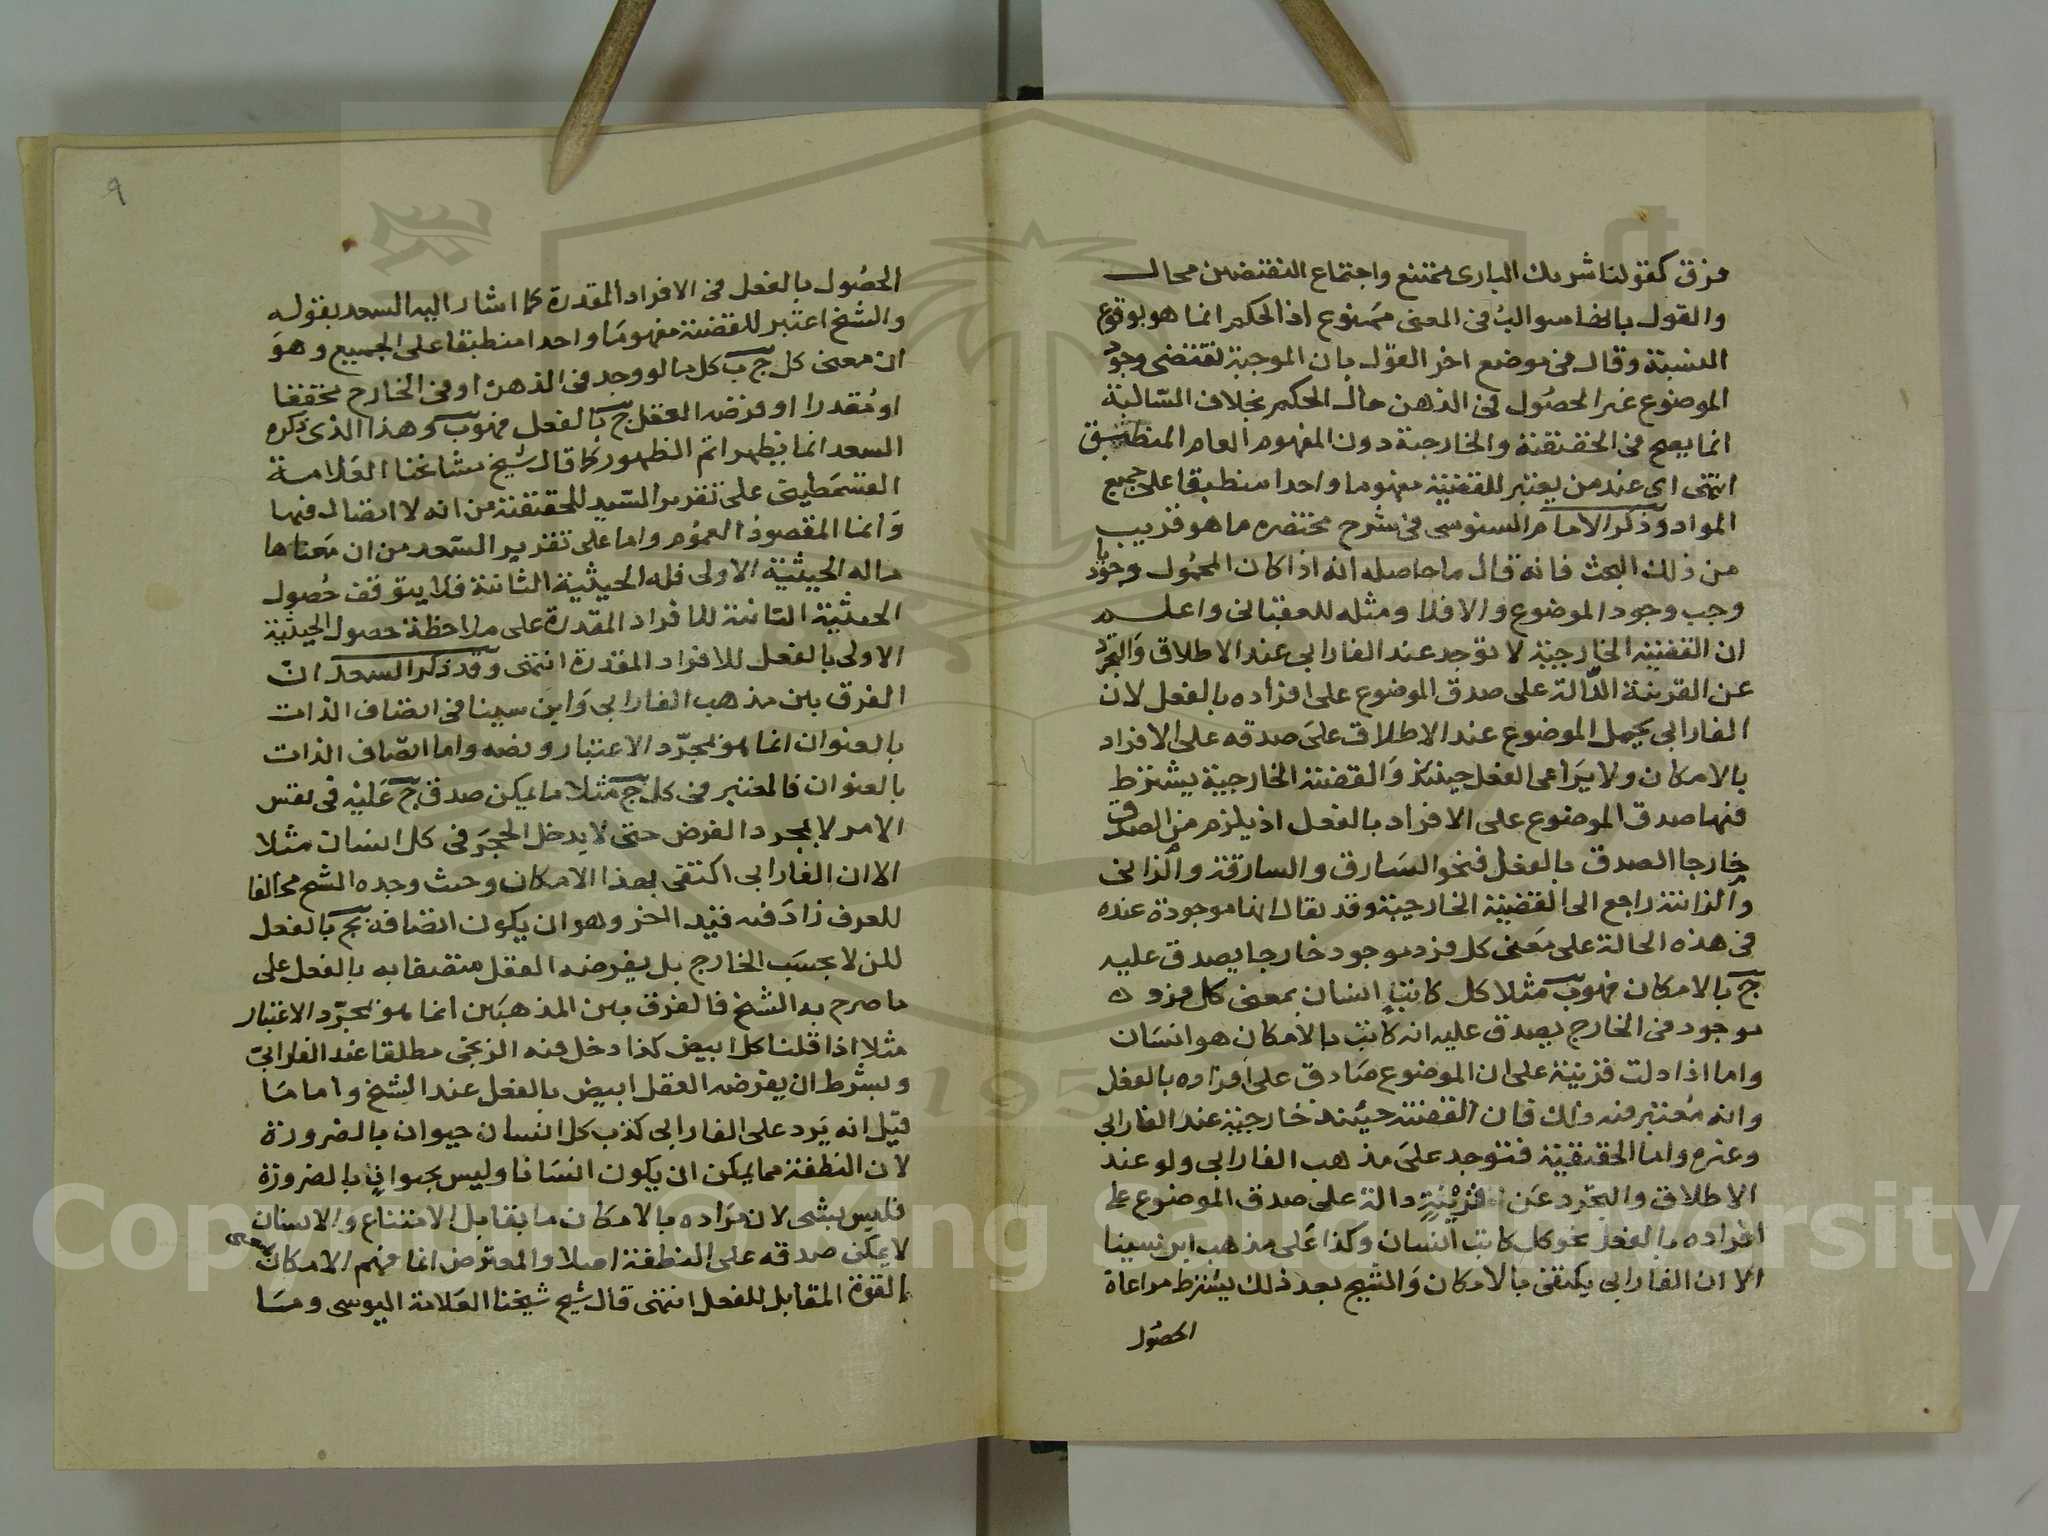 فرق كقولنا شريك البارى ممتنع واجتماع النقيضين محال
والقول بانها سوالب فى المعنى ممنوع اذ الحكم انما هو بوقوع
النسبة وقال فى موضع اخر القول بان الموجبة تقتضى وجود
الموضوع غير الحصول فى الذهن حال الحكم بخلاف السّالبة
انما يصح فى الحقيقية والخارجية دون المفهوم العام المنطبق
انتهى اى عند من يعتبر للقضية مفهوما واحدا منطبقا على جميع
المواد وذكر الامام السنوسى فى شرح مختصره ما هو قريب
من ذلك البحث فانه قال ما حاصله انه اذا كان المحمول وجوديا
وجب وجود الموضوع والا فلا ومثله للعقبانى واعلم
ان القضية الخارجية لا توجد عند الفارابى عند الاطلاق والتجرد
عن القرينة الدّالة على صدق الموضوع على افراده بالفعل لان
الفارابى يحمل الموضوع عند الاطلاق على صدقه على الافراد
بالامكان ولا يراعى الفعل حينئذ والقضية الخارجية يشترط
فيها صدق الموضوع على الافراد بالفعل اذ يلزم من الصدق
خارجا الصدق بالفعل فنحو السارق والسارقة والزانى
والزانية راجع الى القضية الخارجية وقد يقال انها موجودة عنده
فى هذه الحالة على معنى كل فرد موجود خارجا يصدق عليه
ج بالامكان فهو ب مثلا كل كاتب انسان بمعنى كل فرد
موجود فى الخارج يصدق عليه انه كاتب بالامكان هو انسان
واما اذا دلت قرينة على ان الموضوع صادق على افراده بالفعل
وانه معتبر فيه ذلك فان القضية حينئذ خارجية عند الفارابى
وغيره واما الحقيقية فتوجد على مذهب الفارابى ولو عند
الاطلاق والتجرد عن قرينة دالة على صدق الموضوع على
افراده بالفعل نحو كل كاتب انسان وكذا على مذهب ابن سينا
الا ان الفارابى يكتفى بالامكان والشيخ بعد ذلك يشترط مراعاة
الحصول
٩
الحصول بالفعل فى الافراد المقدرة كما اشار اليه السعد بقوله
والشيخ اعتبر للقضية مفهوما واحدا منطبقا على الجميع وهو
ان معنى كل ج ب كل ما لو وجد فى الذهن او فى الخارج محققا
او مقدرا او فرضه العقل ج بالفعل فهو ب وهذا الذى ذكره
السعد انما يظهر اتم الظهور كما قال شيخ مشائخنا العلامة
القسمطينى على تقرير السّيد للحقيقية من انه لا اتصال فيها
وانما المقصود العموم واما على تقرير السّعد من ان معناها
ماله الحيثية الاولى فله الحيثية الثانية فلا يتوقف حصول
الحيثية الثانية للافراد المقدرة على ملاحظة حصول الحيثية
الاولى بالفعل للافراد المقدرة انتهى وقد ذكر السعد انّ
الفرق بين مذهب الفارابى وابن سينا فى اتصاف الذات
بالعنوان انما هو بمجرّد الاعتبار ونصه واما اتصاف الذات
بالعنوان فالمعتبر فى كل ج مثلا ما يمكن صدق ج عليه فى نفس
الامر لا بمجرد الفرض حتى لا يدخل الحجر فى كل انسان مثلا
الا ان الفارابى اكتفى بهذا الامكان وحيث وجده الشيخ مخالفا
للعرف زاد فيه قيد اخر وهو ان يكون اتصافه بج بالفعل
لكن لا بحسب الخارج بل يفرضه العقل متصفا به بالفعل على
ما صرح به الشيخ فالفرق بين المذهبين انما هو بمجرّد الاعتبار
مثلا اذا قلنا كل ابيض كذا دخل فيه الزنجى مطلقا عند الفارابىّ
وبشرط ان يفرضه العقل ابيض بالفعل عند الشيخ واما ما
قيل انه يرد على الفارابى كذب كل انسان حيوان بالضرورة
لان النطفة مما يمكن ان يكون انسانا وليس بحيوان بالضرورة
فليس بشى لان مراده بالامكان ما يقابل الامتناع والانسان
لا يمكن صدقه على النطفة اصلا والمعترض انما فهم الامكان بمعنى
القوة المقابل للفعل انتهى قال شيخ شيخنا العلامة اليوسى وما
Copyright © King Saud University
1957